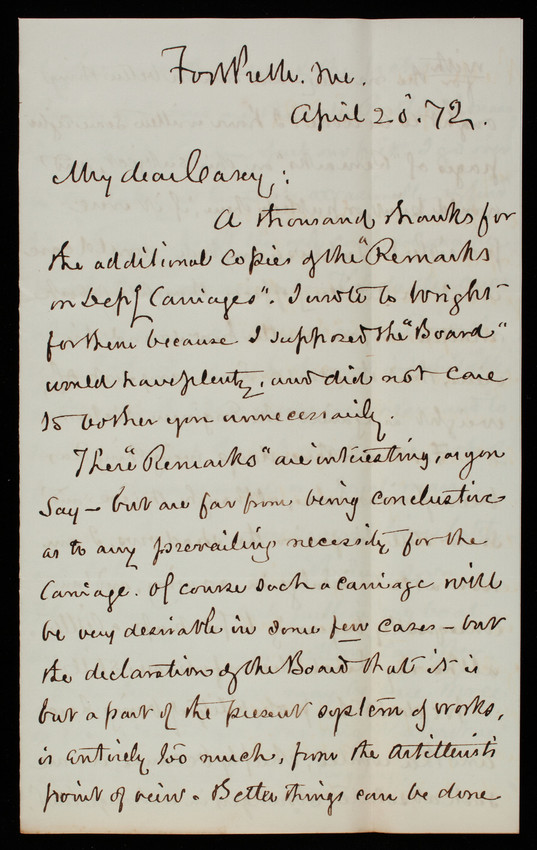 Fort Preble. Me.
April 20. 72.
My dear Casey,:
A thousand thanks for
the additional copies of the "Remarks
on Depg Carriages". I wrote to Wright
for them because I supposed the "Board"
would have plenty, and did not care
to bother you unnecessarily.
These "Remarks" are interesting, as you
say – but are far from being conclusive
as to any prevailing necessity for the
Carriage. Of course such a carriage will
be very desirable in some few cases – but
the declaration of the Board that it is
but a part of the present system of works,
is entirely too much, from the Artillerist's
point of view. Better things can be done